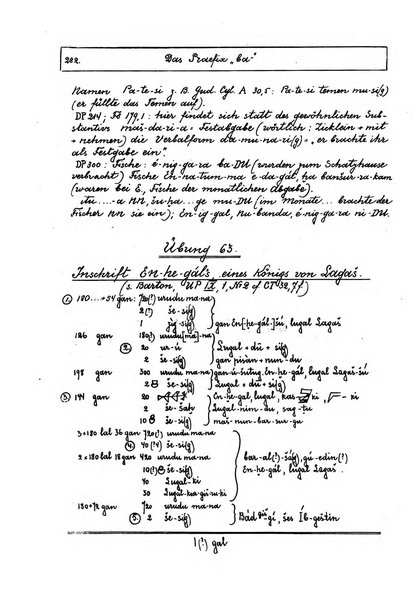 282. Das Praefix „ba-“
Namen Pa-te-si z.B. Gud. Cyl. A 30,5: Pa-te-si temen mu-si(g)
(er füllte das Temen auf).
DP 214; Fö 179,1: hier findet sich statt des gewöhnlichen Sub-
stantivs maš-da-ri-a = Festabgabe (wörtlich: Zicklein + mit
+ nehmen) die Verbalform da-mu-na-ri(g) = er brachte ihr
als Festgabe ein?
DP 300: Fische: é-nig-ga-ra ba-DU (wurden zum Schatzhause
verbracht) Fische En-na-tum-ma e-da-gál, ha banšur-ra-kam
(waren bei E, Fische der monatlichen Abgabe).
itu .... a NN, šu-ha ... ge mu-DU (im Monate ... brachte der
Fischer NN sie ein); En-ig-gal, nu-banda, é-nig-ga-ra ni-DU.
Übung 63.
Inschrift En-he-gál's, eines Königs von Lagaš.
(s. Barton, UP IX, 1, No 2 of CT 32, 7f)
1. 180...+54 gan: 720(!) urudu ma-na
2(!) še-si(g)
1 še-si(g) gan En[-he-gál-]šú, lugal Lagaš
126 gan 180(!) urudu[ma]-na
2. 20 ur-ú Lugal + dú + si(g)
2 še-si(g) gan pisan + nun-du
198 gan 300 urudu ma-na gan-ú-šutug, En-he-gál, lugal Lagaš-šú
2 še-si(g) Lugal + dú + si(g)
3. 144 gan 20 En-he-gal, lugal, kas ki, - ki
2 še-šaḫ Lugal-nim-du, sag-tu
10 še-si(g) maš-nun-bar-su-gu
3 = 180 lal 36 gan 720(!) urudu ma-na
4. 40(!) še-si(g) bar-al(!)-šá(g), gú-edin(!)
2 = 180 lal 18 gan 420 urudu ma-na En-he-gál, lugal Lagaš.
10(!) še-si(g)
40 Lugal-ki
30 Lugal-ka-gú-ru-ki
180+72 gan 720 urudu ma-na
5. 2 še-si(g) Bád giš-gí, šes Íb-geštin
1(!) gal